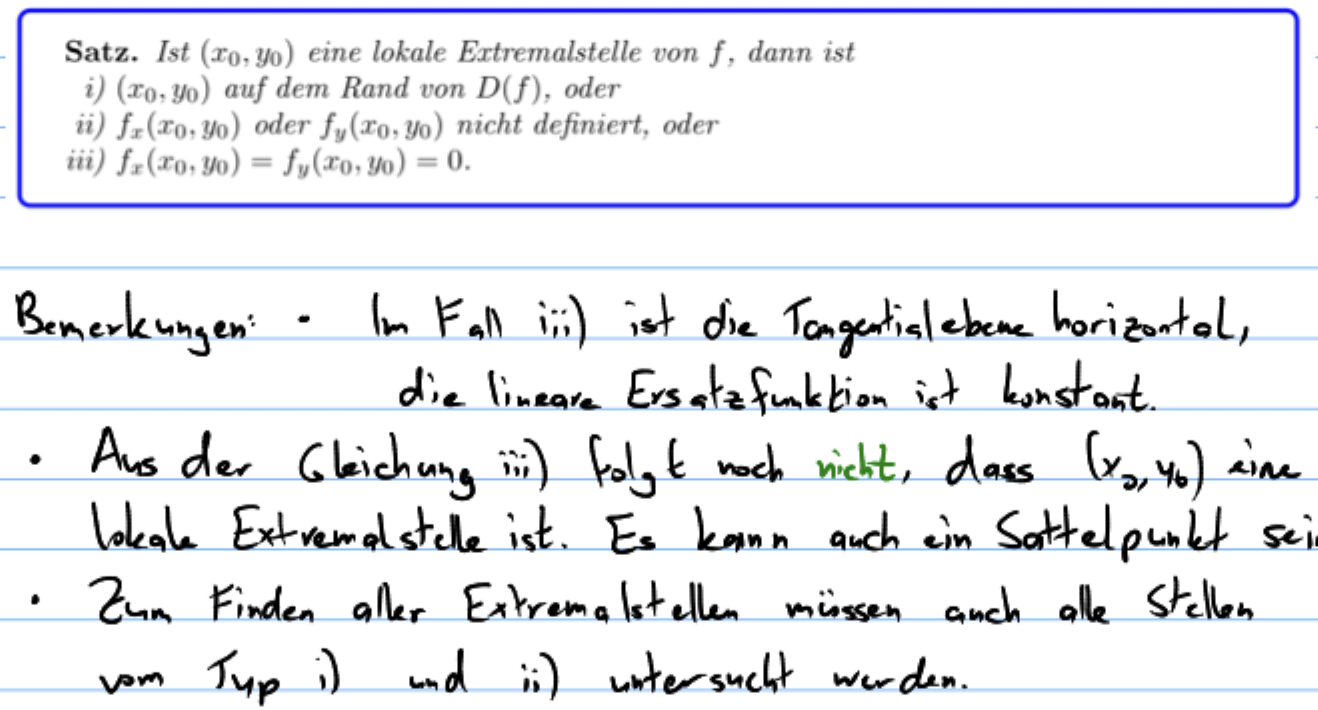 Satz. Ist (x₀, y₀) eine lokale Extremalstelle von f, dann ist
i) (x₀, y₀) auf dem Rand von D(f), oder
ii) fₓ(x₀, y₀) oder f_y(x₀, y₀) nicht definiert, oder
iii) fₓ(x₀, y₀) = f_y(x₀, y₀) = 0.
Bemerkungen: • Im Fall iii) ist die Tangentialebene horizontal,
die lineare Ersatzfunktion ist konstant.
• Aus der Gleichung iii) folgt noch nicht, dass (x₀, y₀) eine
lokale Extremalstelle ist. Es kann auch ein Sattelpunkt sei
• Zum Finden aller Extremalstellen müssen auch alle Stellen
vom Typ i) und ii) untersucht werden.